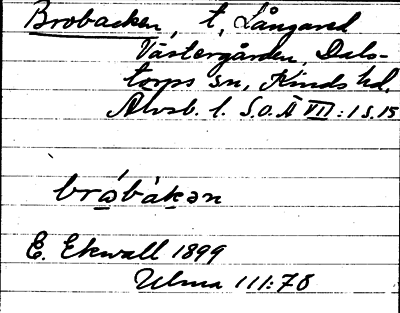 Brobacken, t, Långared
Västergården, Dals-
torps sn, Kinds hd.
Älvsb. l. S.O.Ä VII:1 S.15
bró̲bàk̲ən
E. Ekwall 1899
Ulma 111:78